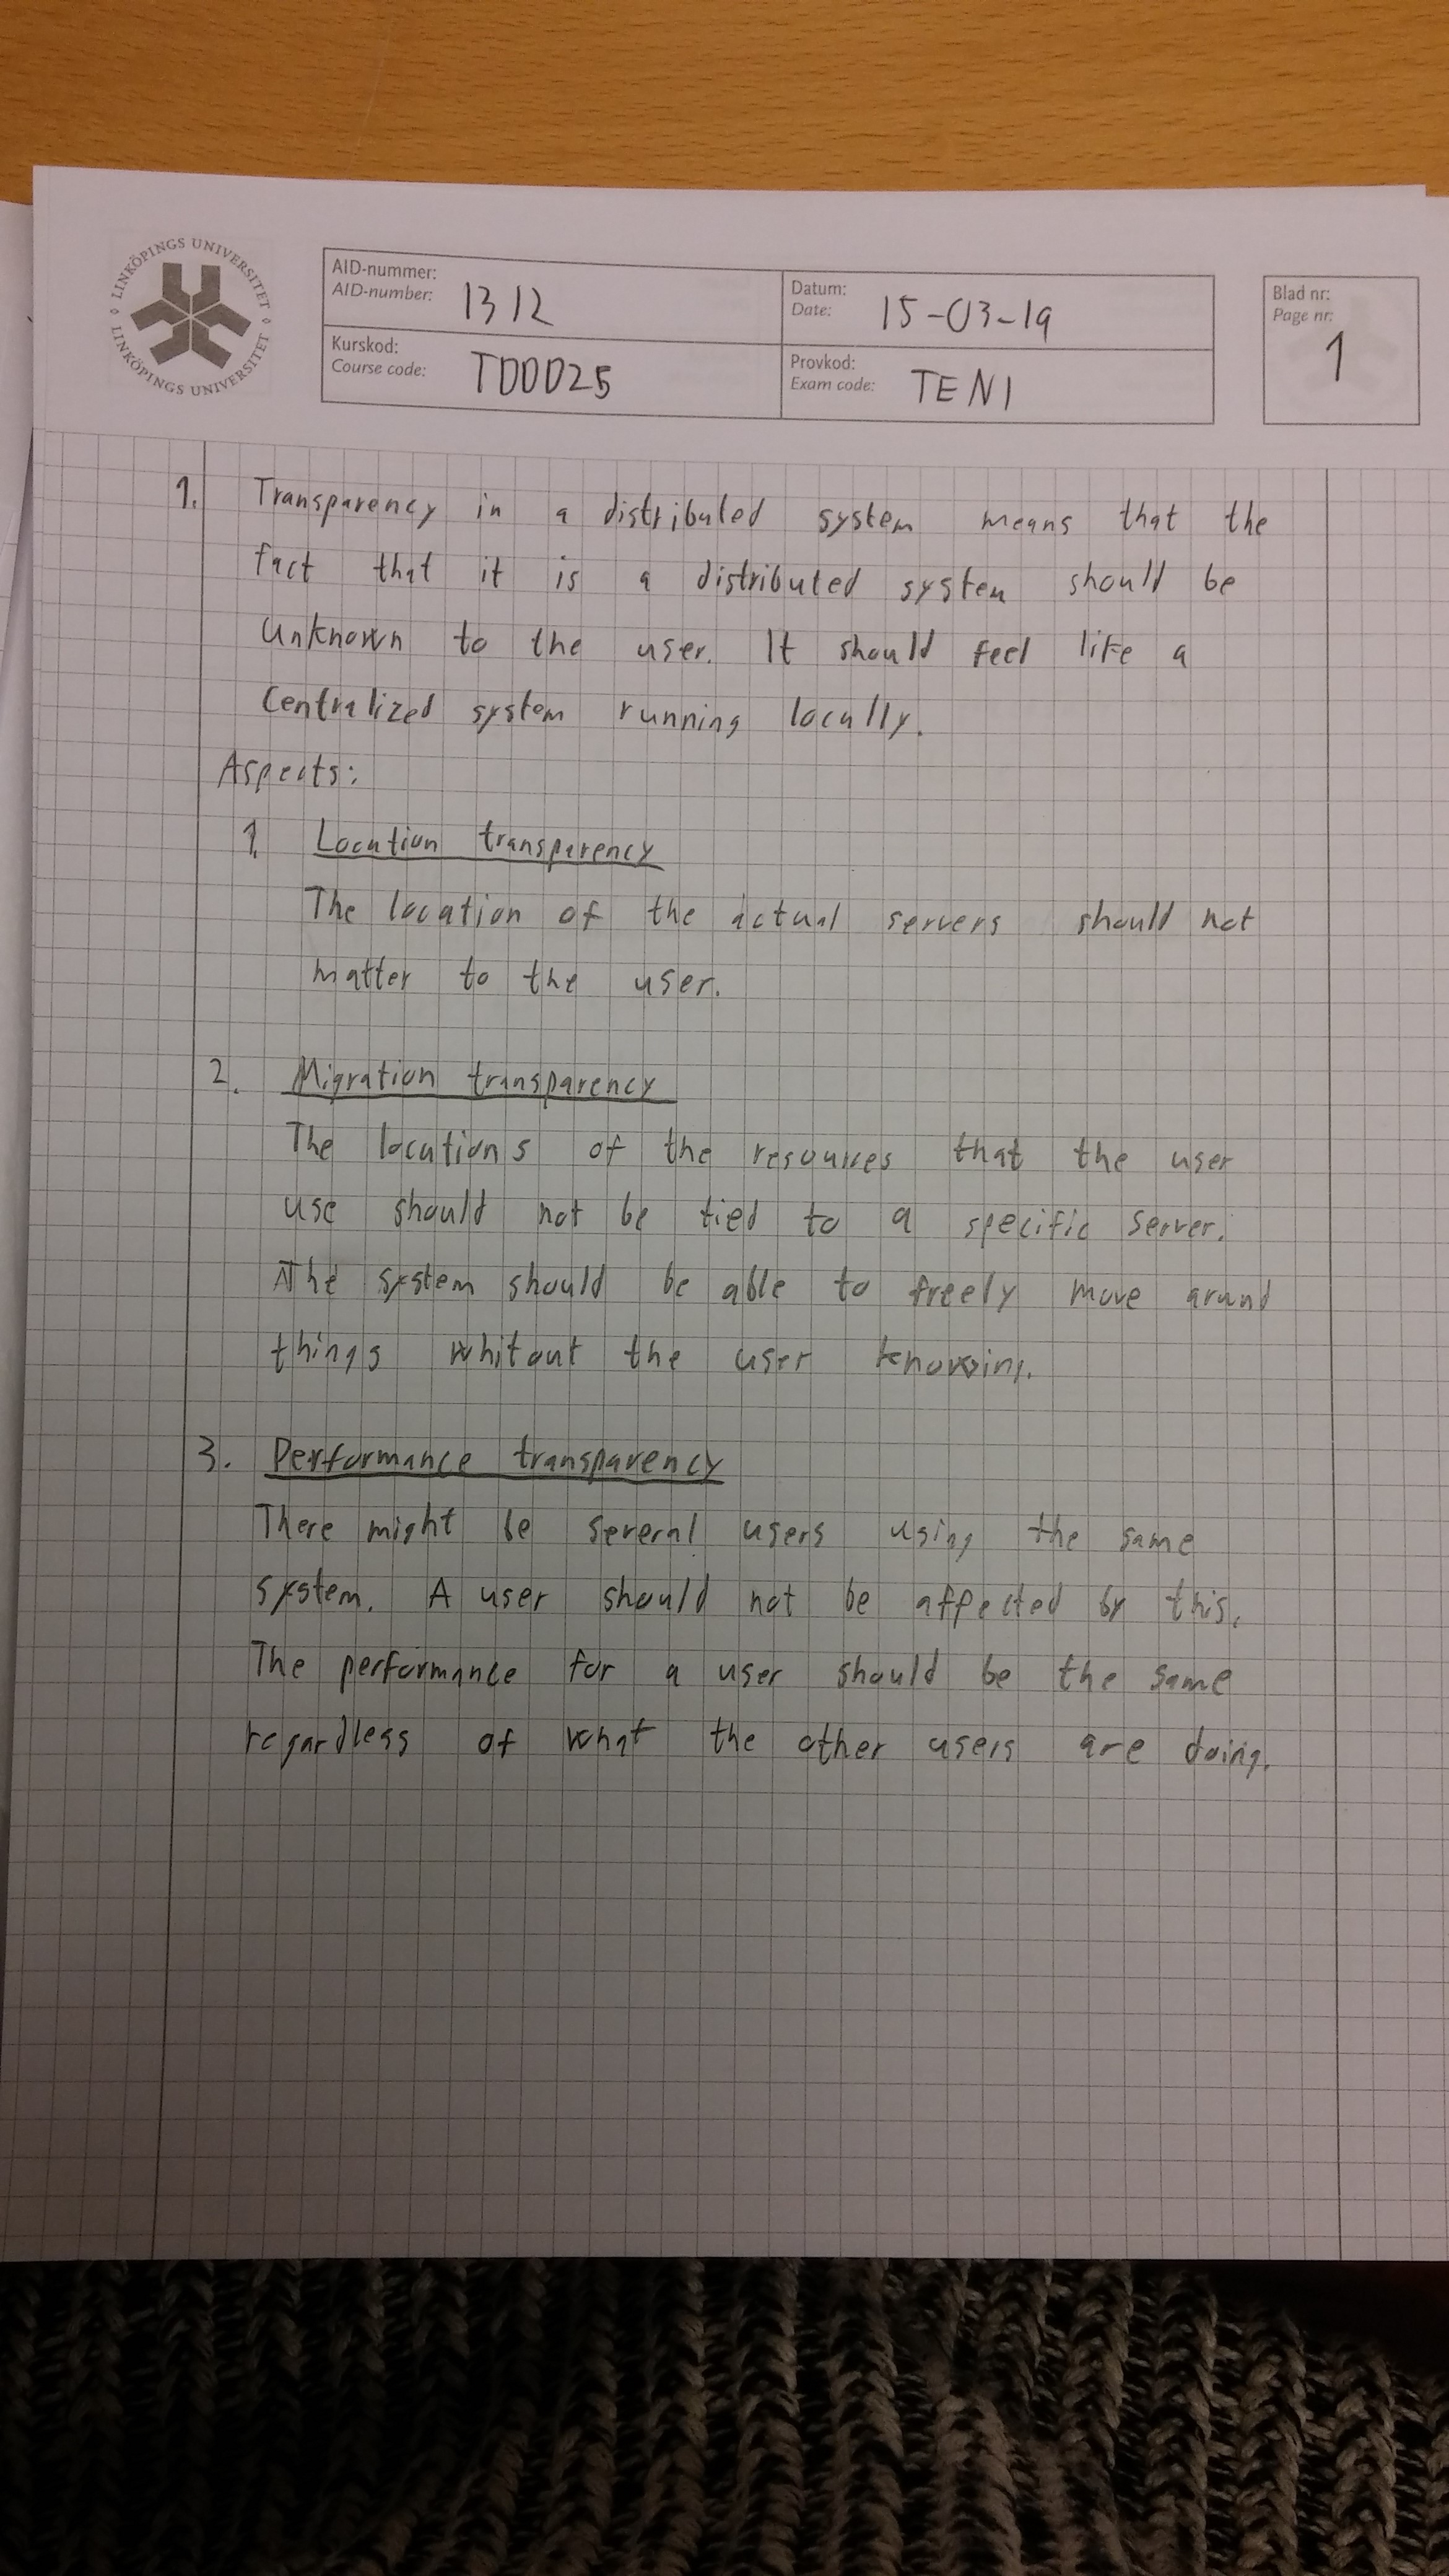 LINKÖPINGS UNIVERSITET
LINKÖPINGS UNIVERSITET
AID-nummer:
AID-number: 1312
Datum:
Date: 15-03-19
Blad nr:
Page nr:
1
Kurskod:
Course code: TDDD25
Provkod:
Exam code: TEN1
1. Transparency in a distributed system means that the
fact that it is a distributed system should be
unknown to the user. It should feel like a
centralized system running locally.
Aspects:
1. Location transparency
The location of the actual servers should not
matter to the user.
2. Migration transparency
The locations of the resources that the user
use should not be tied to a specific server.
The system should be able to freely move around
things whitout the user knowing.
3. Performance transparency
There might be several users using the same
system. A user should not be affected by this.
The performance for a user should be the same
regardless of what the other users are doing.